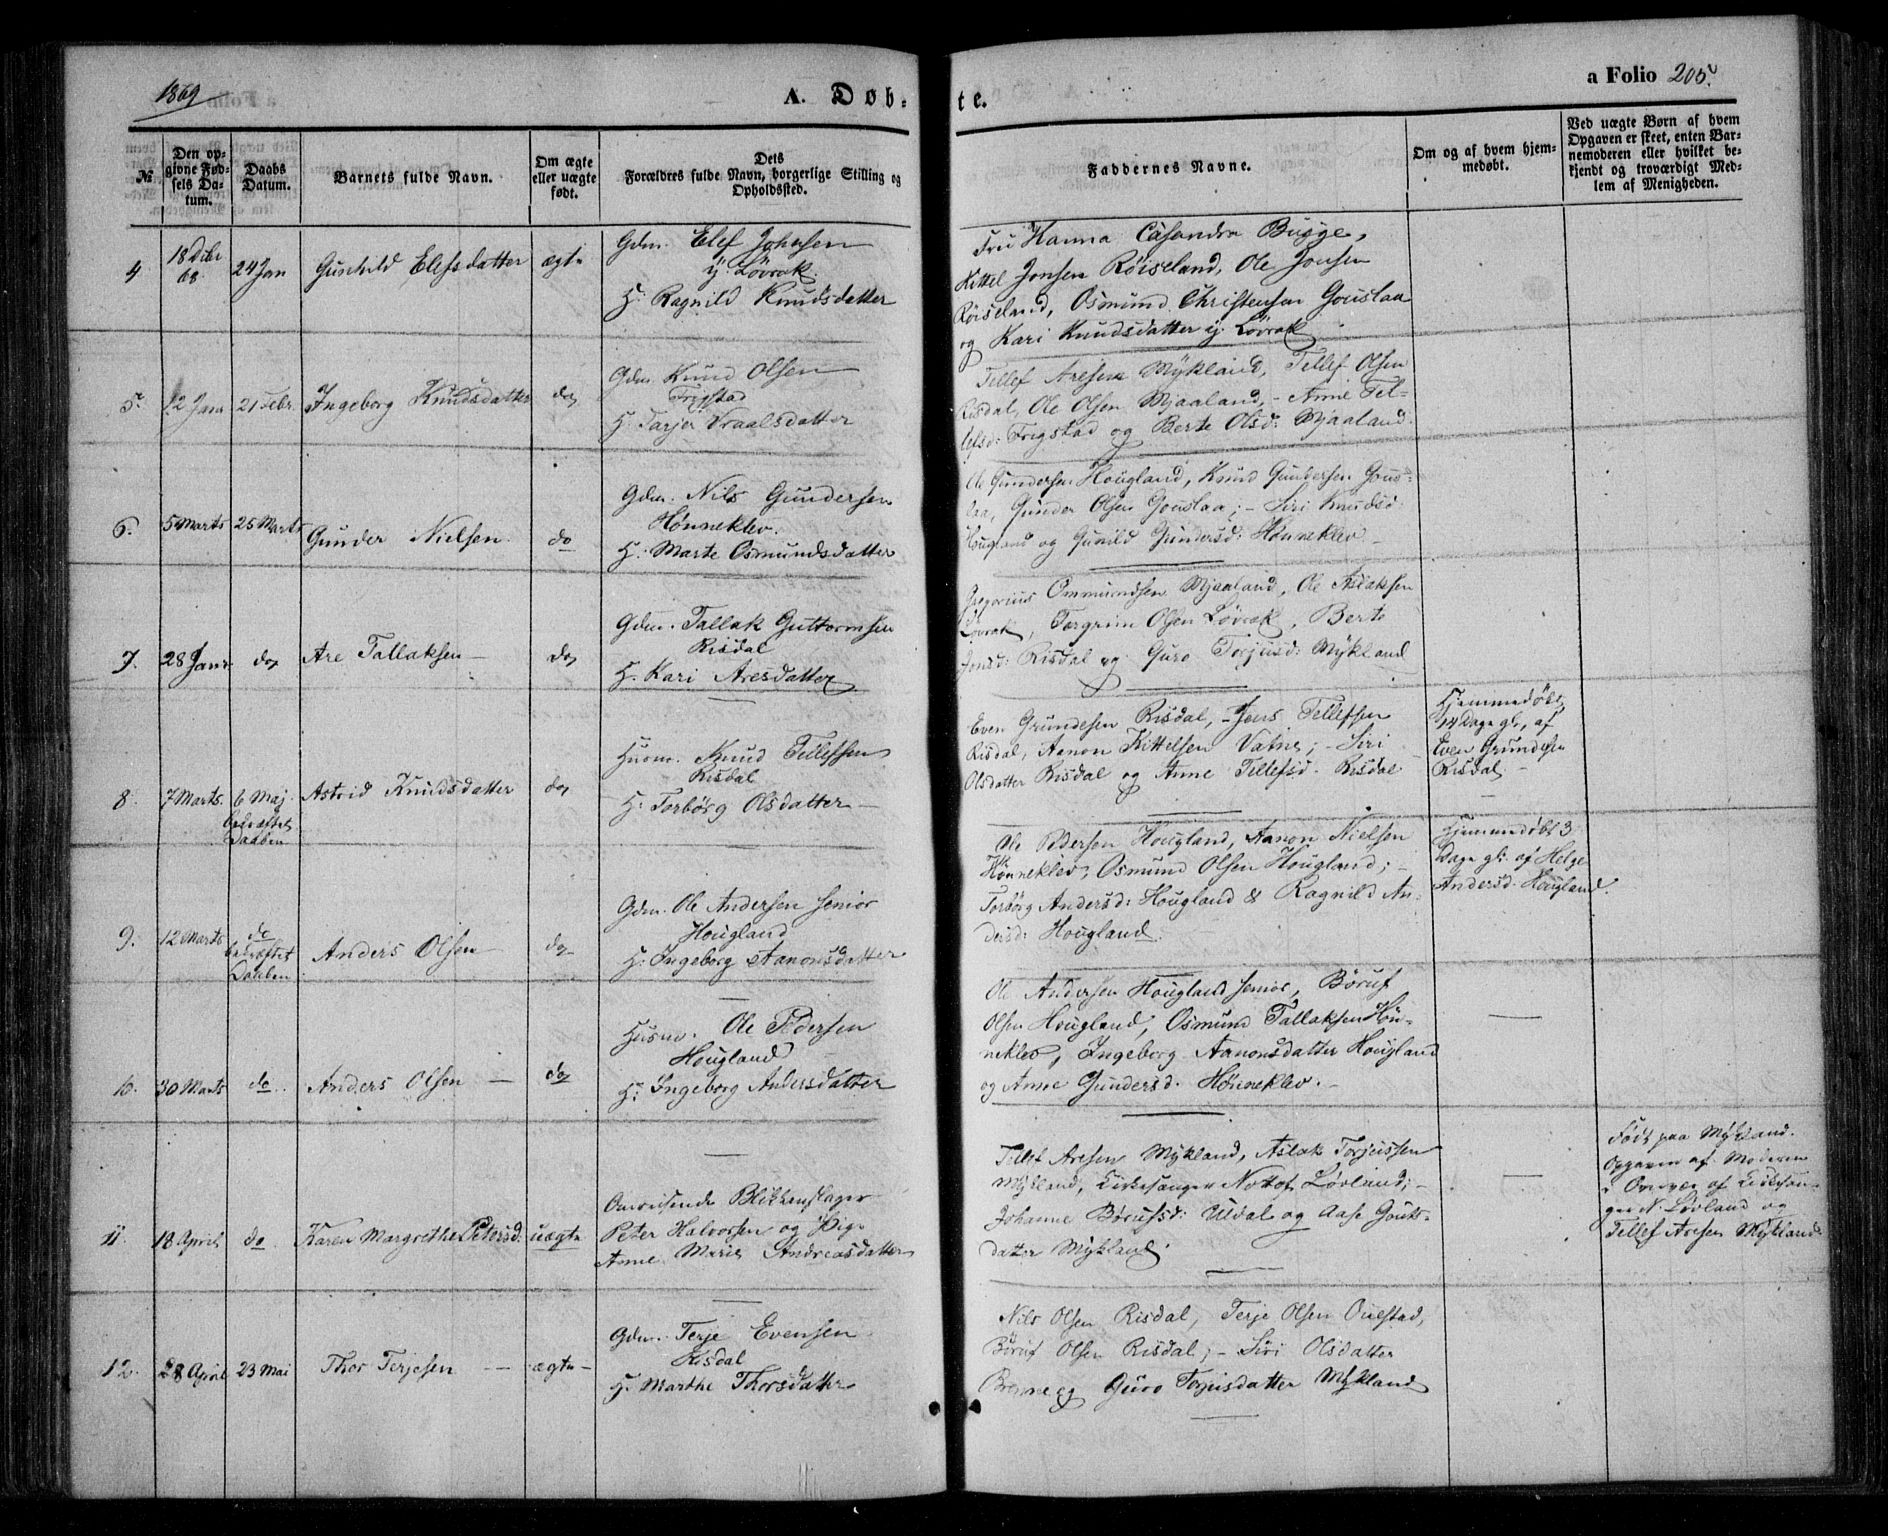 1869
A. Døb-
te.
a Folio 205.
№
Den op-
givne Fød-
sels Da-
tum.
Daabs
Datum.
Barnets fulde Navn.
Om ægte
eller uægte
født.
Dets
Forældres fulde Navn, borgerlige Stilling og
Opholdssted.
Faddernes Navne.
Om og af hvem hjem-
medøbt.
Ved uægte Børn af hvem
Opgaven er skeet, enten Bar-
nemoderen eller hvilket be-
kjendt og troværdigt Med-
lem af Menigheden.
4
18 Dcbr
68
24 Jan
Gunhild Elefsdatter
ægte
Gdm. Elef Johnsen
y. Løvrak.
H: Ragnild Knudsdatter
Fru Hanna Casandra Bugge,
Kittel Jonsen Røiseland, Ole Jonsen
Røiseland, Osmund Christensen Gouslaa
og Kari Knudsdatter y. Løvrak
5.
12 Janr
21 Febr.
Ingeborg Knudsdatter
do
Gdm. Knud Olsen
Frigstad
H. Tarjer Vraalsdatter
Tellef Aresen Mykland, Tellef Olsen
Risdal, Ole Olsen Mjaaland, - Anne Tel-
lefsd: Frigstad og Berte Olsd: Mjaaland.
6.
5 Marts
25 Marts
Gunder Nielsen.
do
Gdm. Nils Gundersen
Hønneklev.
H: Marte Osmundsdatter
Ole Gundersen Hougland, Knud Gundersen Gous-
laa, Gunder Olsen Gouslaa; - Siri Knudsd:
Hougland og Gunild Gundersd: Hønneklev -
7.
28 Janr
do
Are Tallaksen -
do
Gdm. Tallak Guttormsen
Risdal
H. Kari Aresdatter
Gregorius Ommundsen Mjaaland, Ole Aslaksen
Løvrak, Torgrim Olsen Løvrak, Berte
Jonsd: Risdal og Guro Torjusd: Mykland
8.
7 Marts.
6 Maj.
bekræftet
Daaben
Astrid Knudsdatter
do
Husm. Knud Tellefsen
Risdal
H: Torbørg Olsdatter -
Even Grundesen Risdal, - Jens Tellefsen
Risdal, Aanon Kittelsen Vatne; - Siri
Olsdatter Risdal og Anne Tellefsd. Risdal
Hjemmedøbt
14 Dage gl., af
Even Grundesen
Risdal -
9.
12 Marts
do
bekræftet
Daaben
Anders Olsen -
do
Gdm. Ole Andersen senior
Hougland
H: Ingeborg Aanonsdatter
Ole Pedersen Hougland, Aanon Nielsen
Hønneklev, Osmund Olsen Hougland; -
Torbørg Andersd: Hougland & Ragnild An-
dersd: Hougland.
Hjemmedøbt 3
Dage gl. af Helge
Andersd. Hougland.
10.
30 Marts
do.
Anders Olsen -
do
Husm. Ole Pedersen
Hougland
H: Ingeborg Andersdatter
Ole Andersen Hougland senior, Børuf
Olsen Hougland, Osmund Tallaksen Høn-
neklev, Ingeborg Aanonsdatter Hougland
og Anne Gundersd. Hønneklev. -
11.
18 April
do
Karen Margrethe Petersd.
uægte
Omreisende Blikkenslager
Peter Halvorsen og Pige
Anne Marie Andreasdatter
Tellef Aresen Mykland, Aslak Torjussen
Mykland, Kirkesanger Notof Løvland; -
Johanne Børufsd: Uldal og Aase Gouts-
datter Mykland.
Født paa Mykland.
Opgaven af Moderen
i Overvær af Kirkesan-
ger N. Løvland og
Tellef Aresen Mykland
12.
28 April
23 Mai
Thor Terjesen - -
ægte -
Gdm. Terje Evensen
Risdal
H. Marthe Thorsdatter
Nils Olsen Risdal, Terje Olsen Ouestad,
Børuf Olsen Risdal; - Siri Olsdatter
og Guro Torjusdatter Mykland